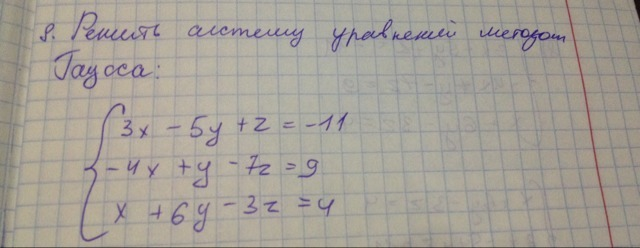 8. Решить систему уравнений методом
Гаусса:
3x - 5y + z = -11
-4x + y - 7z = 9
x + 6y - 3z = 4